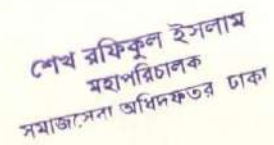 শেখ রফিকুল ইসলাম
মহাপরিচালক
সমাজসেবা অধিদফতর ঢাকা